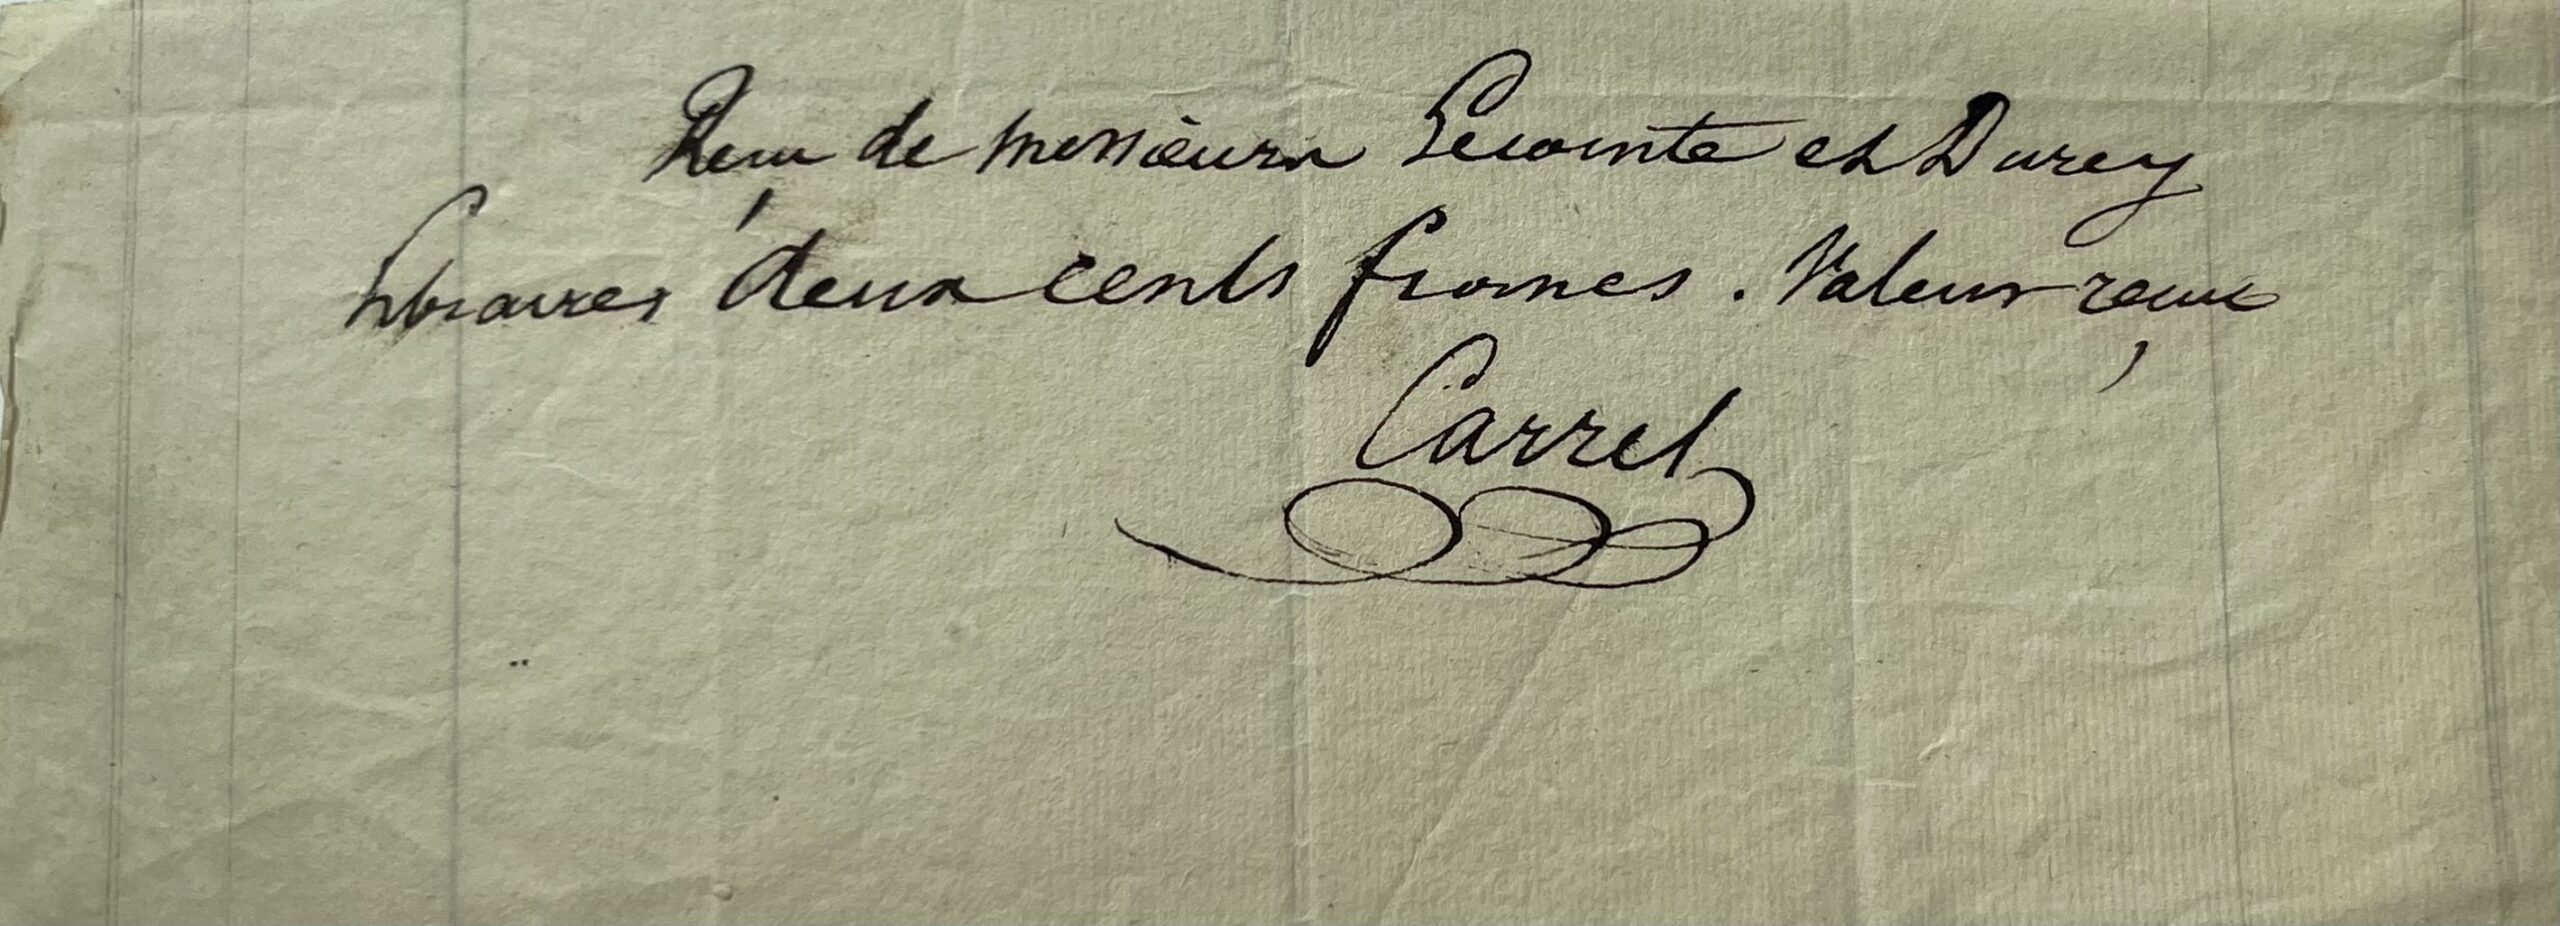 Reçu de messieurs Lecointe et Durey
libraires deux cents francs. Valeur reçue
Carrel